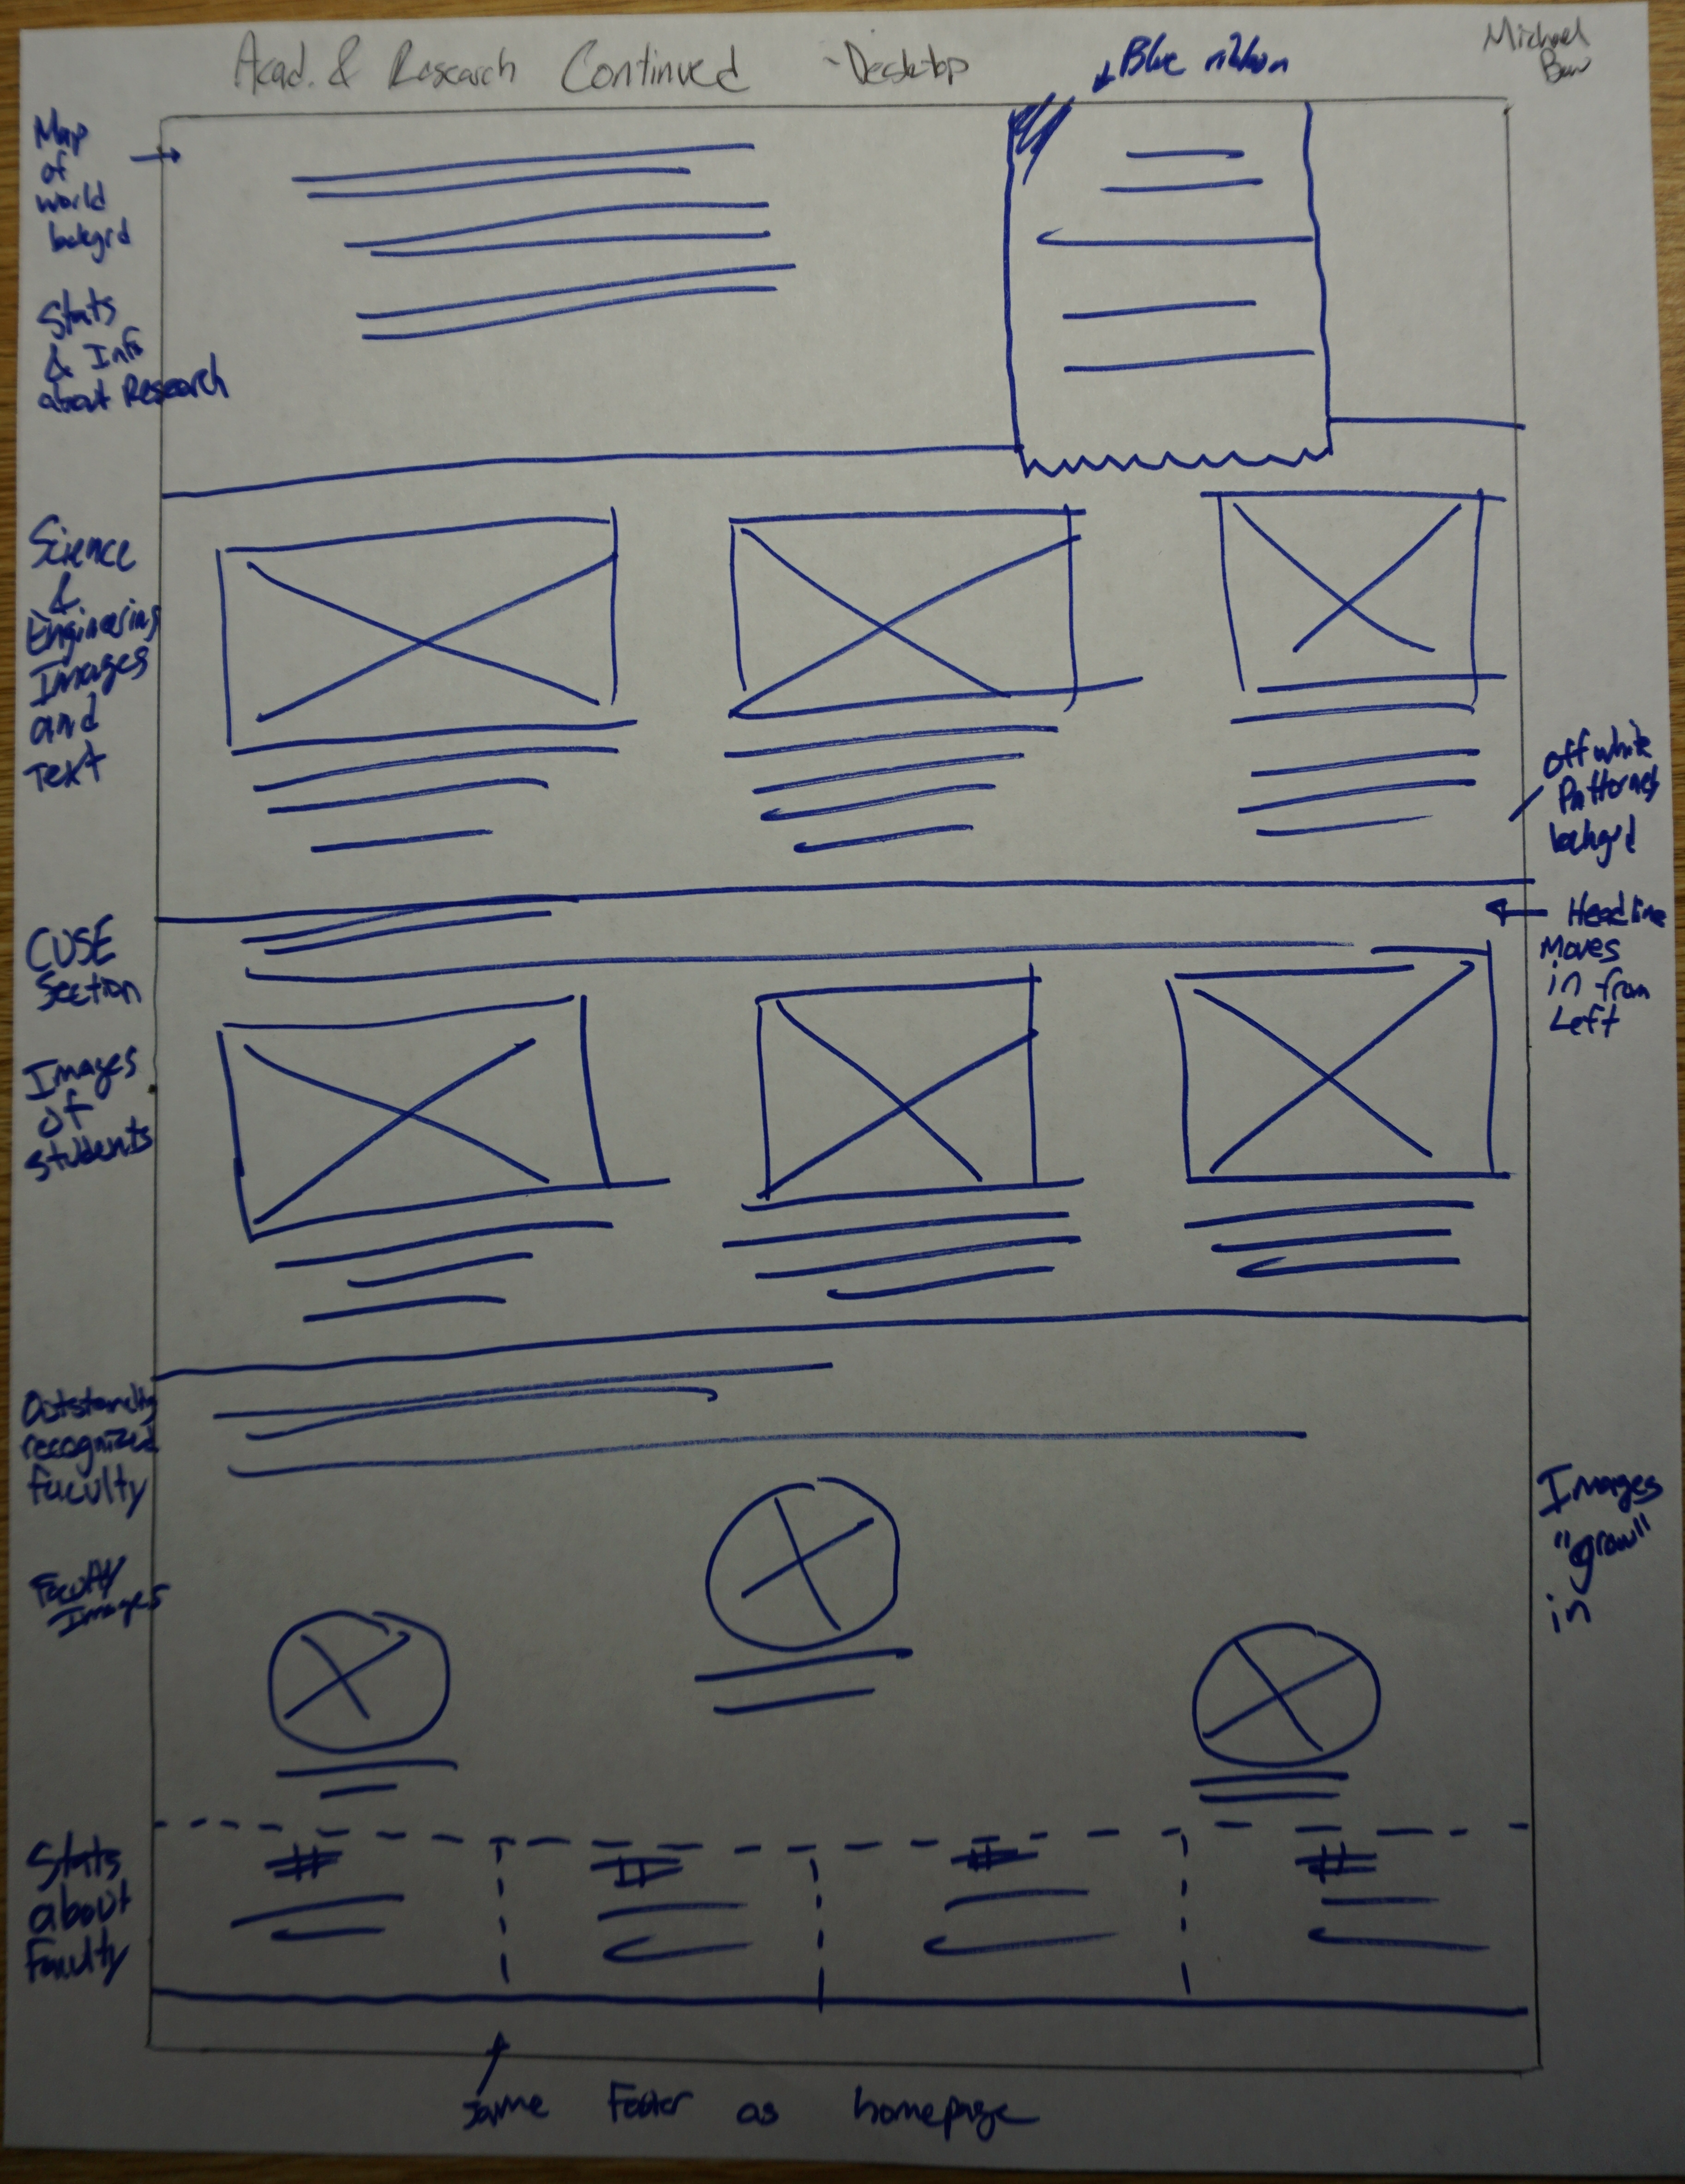 Acad. & Research Continued - Desktop
Blue ribbon
Michael
Map
of
world
backgrd
Stats
& Info
about Research
Science
&
Engineering
Images
and
Text
off white
Patterned
backgrd
CUSE
Section
Headline
Moves
in from
Left
Images
of
students
Outstanding
recognized
faculty
Faculty
Images
Images
"grow"
in
Stats
about
Faculty
#
#
#
#
Same Footer as homepage